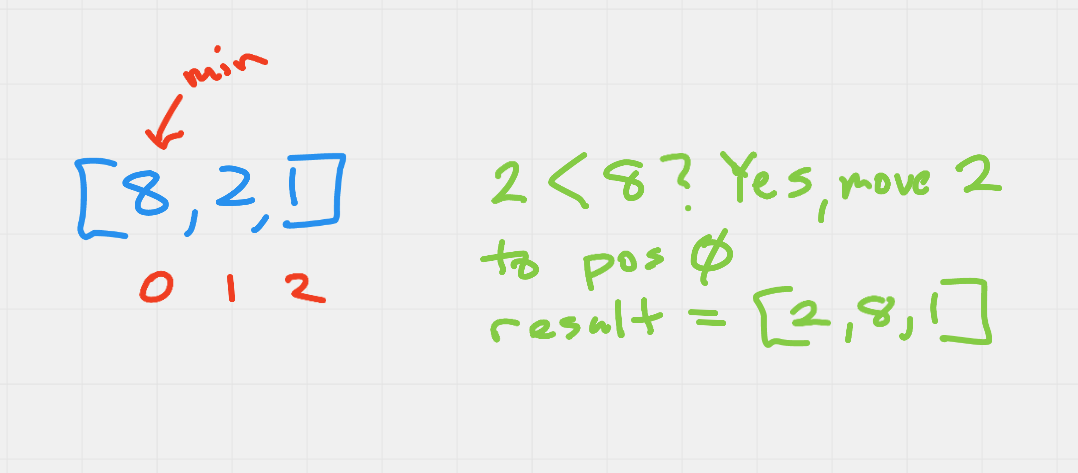 min
[8,2,1]
0 1 2
2 < 8? Yes, move 2
to pos 0
result = [2,8,1]